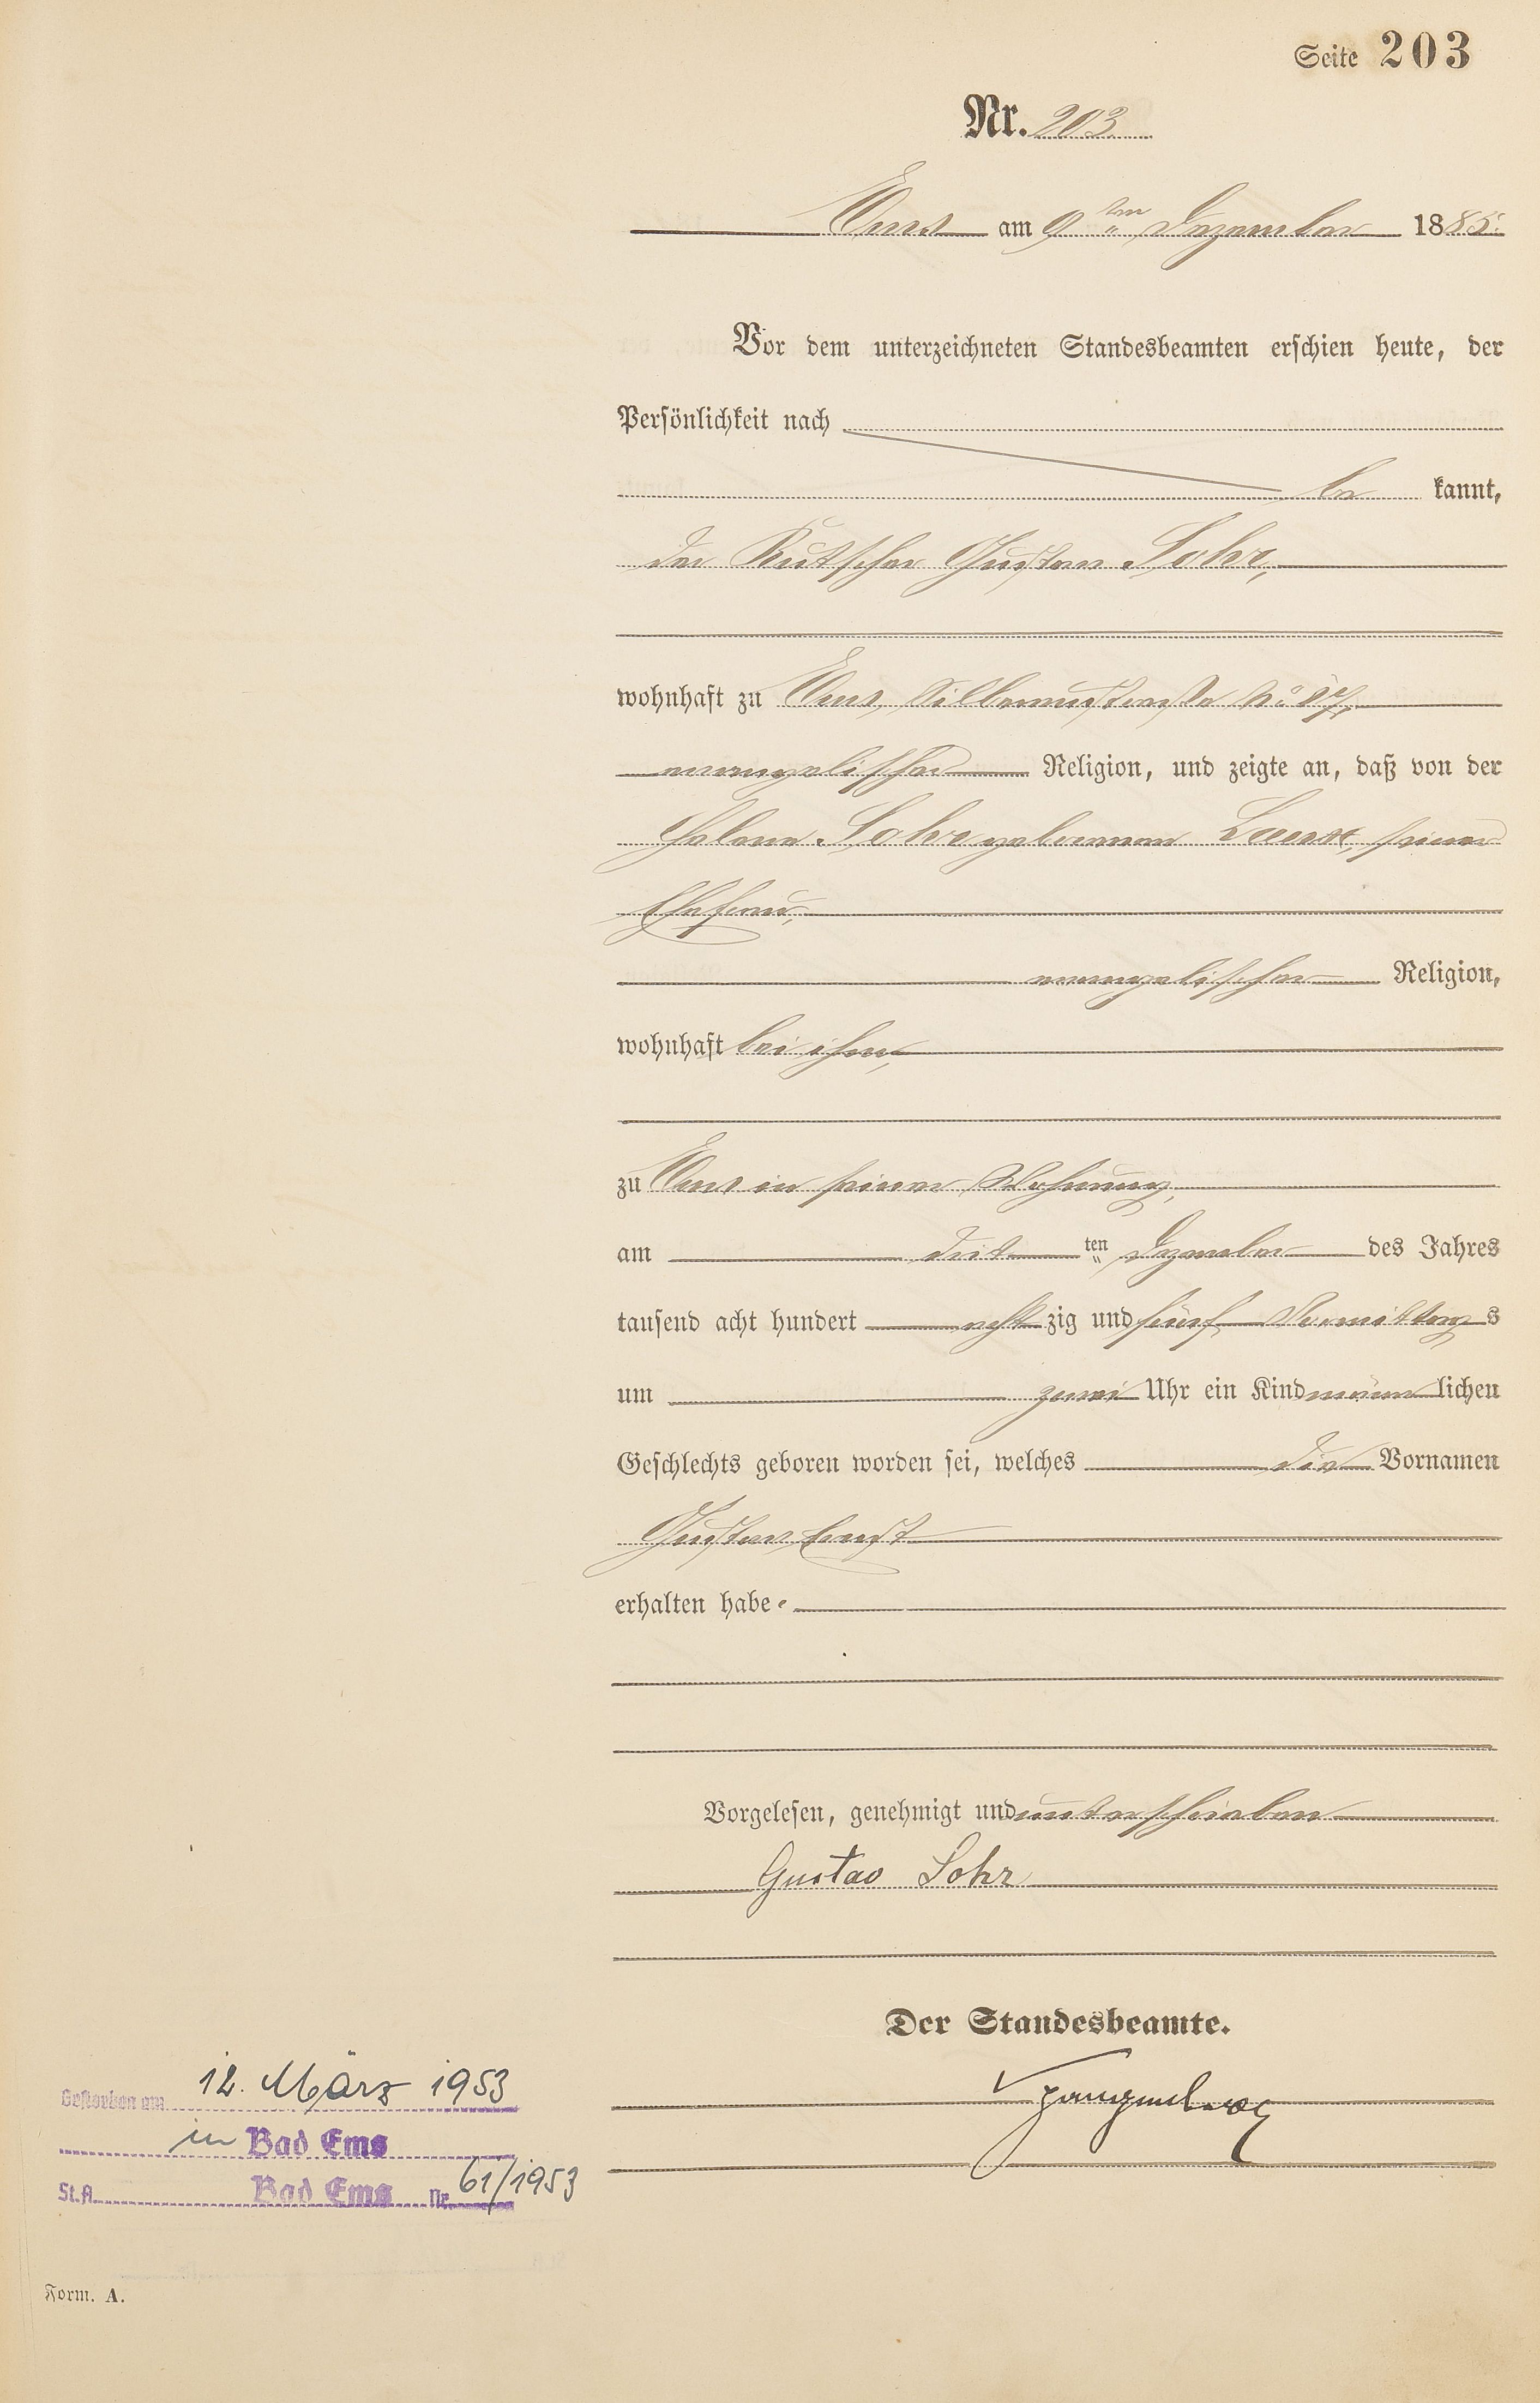 Seite 203
Nr. 203
Ems am 9ten Dezember 1885.
Vor dem unterzeichneten Standesbeamten erschien heute, der
Persönlichkeit nach
be kannt,
der Kutscher Gustav Sohr,
wohnhaft zu Ems, Silberaustraße No 87,
evangelischer Religion, und zeigte an, daß von der
Helene Sohr geborenen seiner
Ehefrau,
evangelischer Religion,
wohnhaft bei ihm,
zu Ems in seiner Wohnung,
am drit ten Dezember des Jahres
tausend acht hundert acht zig und fünf Vormittag s
um zwei Uhr ein Kind männ lichen
Geschlechts geboren worden sei, welches die Vornamen
Gustav Ernst
erhalten habe.
Vorgelesen, genehmigt und unterschrieben
Gustav Sohr
Der Standesbeamte.
Spangenberg
Gestorben am 12. März 1953
in Bad Ems
St.A. Bad Ems Nr. 61/1953
Form. A.